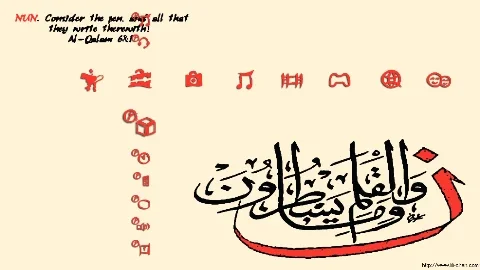 NUN. Consider the pen, and all that
they write therewith!
Al-Qalam 68:1
ن والقلم وما يسطرون